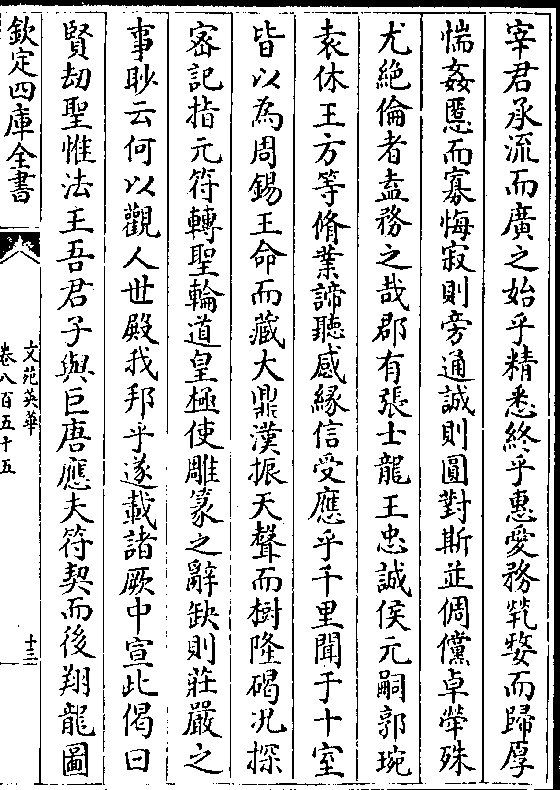 宰君承流而廣之始乎精悉終乎惠愛務煢嫠而歸厚
惴姦慝而寡悔寂則旁通誠則圓對斯並倜儻卓犖殊
尤絶倫者盍務之哉郡有張士龍王忠誠侯元嗣郭琬
袁休王方等脩業諦聽感縁信受應乎千里聞于十室
皆以為周錫王命而藏大鼎漢振天聲而樹隆碣况探
宻記指元符轉聖輪道皇極使雕篆之辭缺則莊嚴之
事眇云何以觀人世殿我邦乎遂載諸厥中宣此偈曰
賢刼聖惟法王吾君子與巨唐應夫符契而後翔龍圖
欽定四庫全書
文苑英華
卷八百五十五
十三